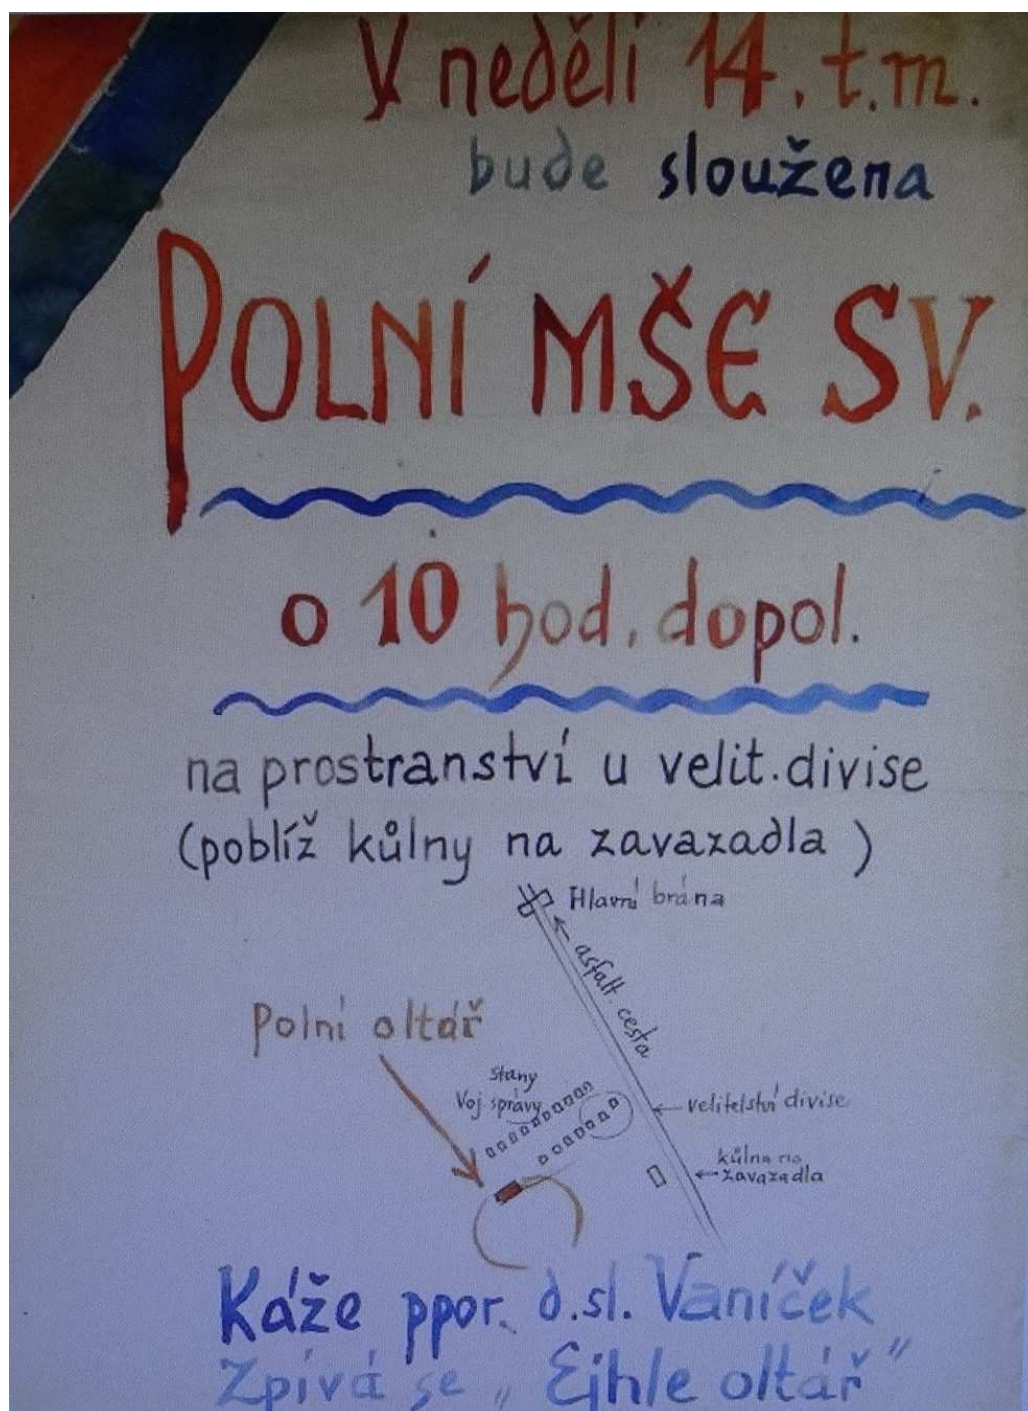 V neděli 14. t.m.
bude sloužena
POLNÍ MŠE SV.
o 10 hod. dopol.
na prostranství u velit. divise
(poblíž kůlny na zavazadla)
Hlavní brána
asfalt. cesta
Polní oltář
stany
Voj. správy
velitelství divise
kůlna na
zavazadla
Káže ppor. d.sl. Vaníček
Zpívá se „Ejhle oltář"